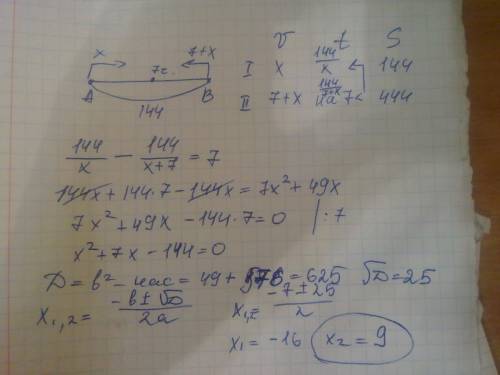 x 7+x
7ч.
A B
144
v t S
I x 144/x 144
II 7+x 144/7+x на 7< 444
144/x − 144/x+7 = 7
144x + 144·7 − 144x = 7x² + 49x
7x² + 49x − 144·7 = 0 |:7
x² + 7x − 144 = 0
D = b² − 4ac = 49 + 576 = 625 √D = 25
x₁,₂ = −b ± √D/2a x₁,₂ = −7 ± 25/2
x₁ = −16 x₂ = 9